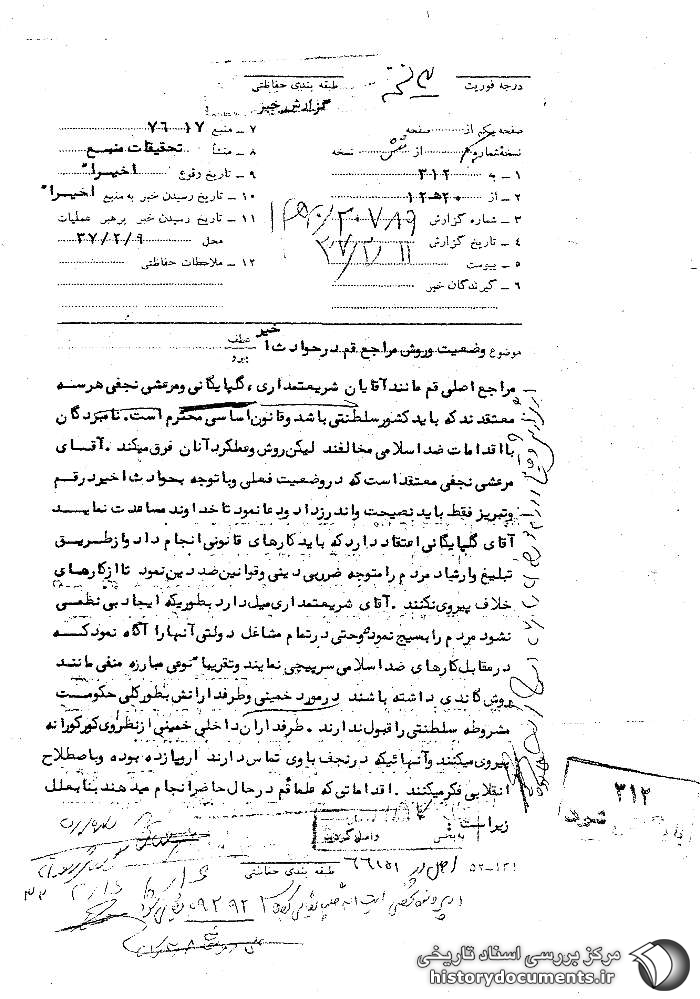 درجه فوریت
طبقه بندی حفاظتی
گزارش خبر
صفحه یک از صفحه
نسخه شماره از نسخه
۱ – به ۳۱۲
۲ – از ۲۰ ه‍ ۱۲
۳ – شماره گزارش
۴ – تاریخ گزارش ۳۷/۲/۱۱
۵ – پیوست
۶ – گیرندگان خبر
۷ – منبع ۷۶۰۱۷
۸ – منشأ تحقیقات منبع
۹ – تاریخ وقوع اخیرا"
۱۰ – تاریخ رسیدن خبر به منبع اخیرا"
۱۱ – تاریخ رسیدن خبر برهبر عملیات
محل ۳۷/۲/۹
۱۲ – ملاحظات حفاظتی
موضوع وضعیت و روش مراجع قم در حوادث اخیر
عطف
پیرو
مراجع اصلی قم مانند آقایان شریعتمداری، گلپایگانی و مرعشی نجفی هر سه
معتقدند که باید کشور سلطنتی باشد و قانون اساسی محترم است. نامبردگان
با اقدامات ضد اسلامی مخالفند لیکن روش و عملکرد آنان فرق میکند. آقای
مرعشی نجفی معتقد است که در وضعیت فعلی و با توجه بحوادث اخیر در قم
و تبریز فقط باید نصیحت و اندرز داد و دعا نمود تا خداوند مساعدت نماید
آقای گلپایگانی اعتقاد دارد که باید کارهای قانونی انجام داد و از طریق
تبلیغ و ارشاد مردم را متوجه ضروبی دینی و قوانین ضد دین نمود تا از کارهای
خلاف پیروی نکنند. آقای شریعتمداری میل دارد بطوریکه ایجاد بی نظمی
نشود مردم را بسیج نمود و حتی در تمام مشاغل دولتی آنها را آگاه نمود که
در مقابل کارهای ضد اسلامی سرپیچی نمایند و تقریبا" نوعی مبارزه منفی مانند
روش گاندی داشته باشند در مورد خمینی و طرفدارانش بطور کلی حکومت
مشروطه سلطنتی را قبول ندارند. طرفداران داخلی خمینی از نظر وی کورکورانه
پیروی میکنند و آنهائیکه در نجف با وی تماس دارند اروپا زده بوده و باصطلاح
انقلابی فکر میکنند. اقداماتی که علما قم در حال حاضر انجام میدهند بنا بعلل
زیر است
۳۱۲
۵۲–۱۲۱
طبقه بندی حفاظتی
اصل در ۶۶۱۵۱
۳۳
مرکز بررسی اسناد تاریخی
historydocuments.ir